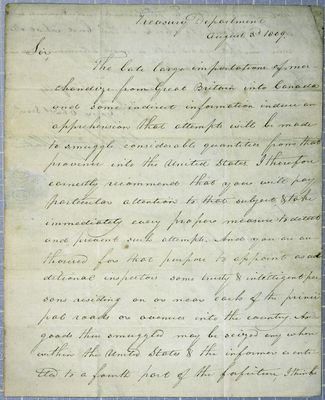 Treasury Department
August 3d 1809
Sir,
The late large importations of mer
chandize from Great Britain into Canada
and some indirect information induce an
apprehension that attempts will be made
to smuggle considerable quantities from that
province into the United States I therefore
earnestly recommend that you will pay
particular attention to that subject & take
immediately every proper measure to detect
and prevent such attempts. And you are au
thorised for that purpose to appoint as ad
ditional inspectors some trusty & intelligent per
sons residing on or near each of the princi
pal roads or avenues into the country. As
goods thus smuggled may be seized any where
within the United States & the informer is enti
tled to a fourth part of the forfeiture I think